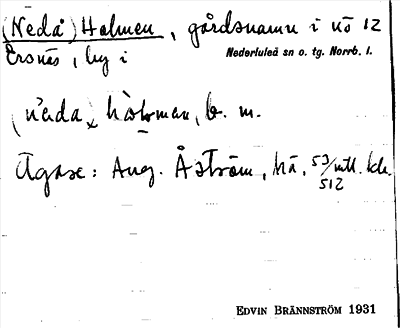 (Nedå) Holmen, gårdsnamn i nö 12
Ersnäs, by i Nederluleå sn o. tg. Norrb. l.
b. m.
Ägare: Aug. Åström, 53/
512
EDVIN BRÄNNSTRÖM 1931